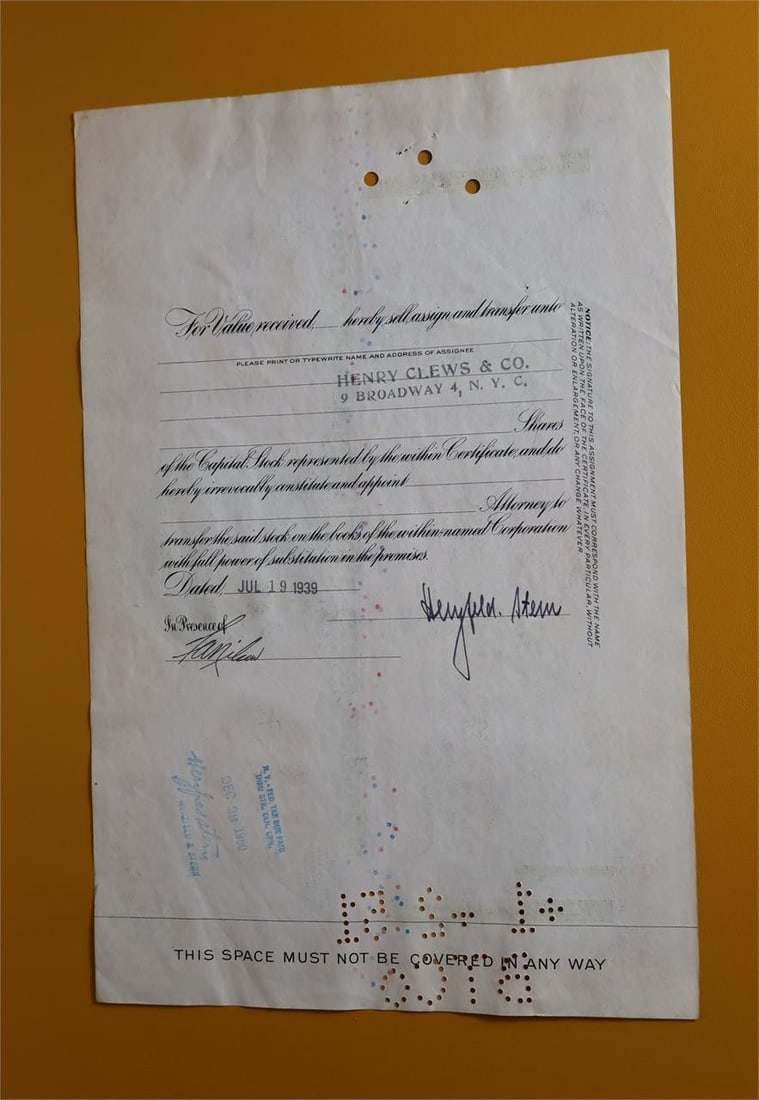 For Value received, hereby sell, assign and transfer unto
PLEASE PRINT OR TYPEWRITE NAME AND ADDRESS OF ASSIGNEE
HENRY CLEWS & CO.
9 BROADWAY 4, N. Y. C.
Shares
of the Capital Stock represented by the within Certificate, and do
hereby irrevocably constitute and appoint
Attorney to
transfer the said stock on the books of the within-named Corporation
with full power of substitution in the premises.
Dated, JUL 19 1939
In Presence of
NOTICE: THE SIGNATURE TO THIS ASSIGNMENT MUST CORRESPOND WITH THE NAME
AS WRITTEN UPON THE FACE OF THE CERTIFICATE, IN EVERY PARTICULAR, WITHOUT
ALTERATION OR ENLARGEMENT, OR ANY CHANGE WHATEVER.
THIS SPACE MUST NOT BE COVERED IN ANY WAY